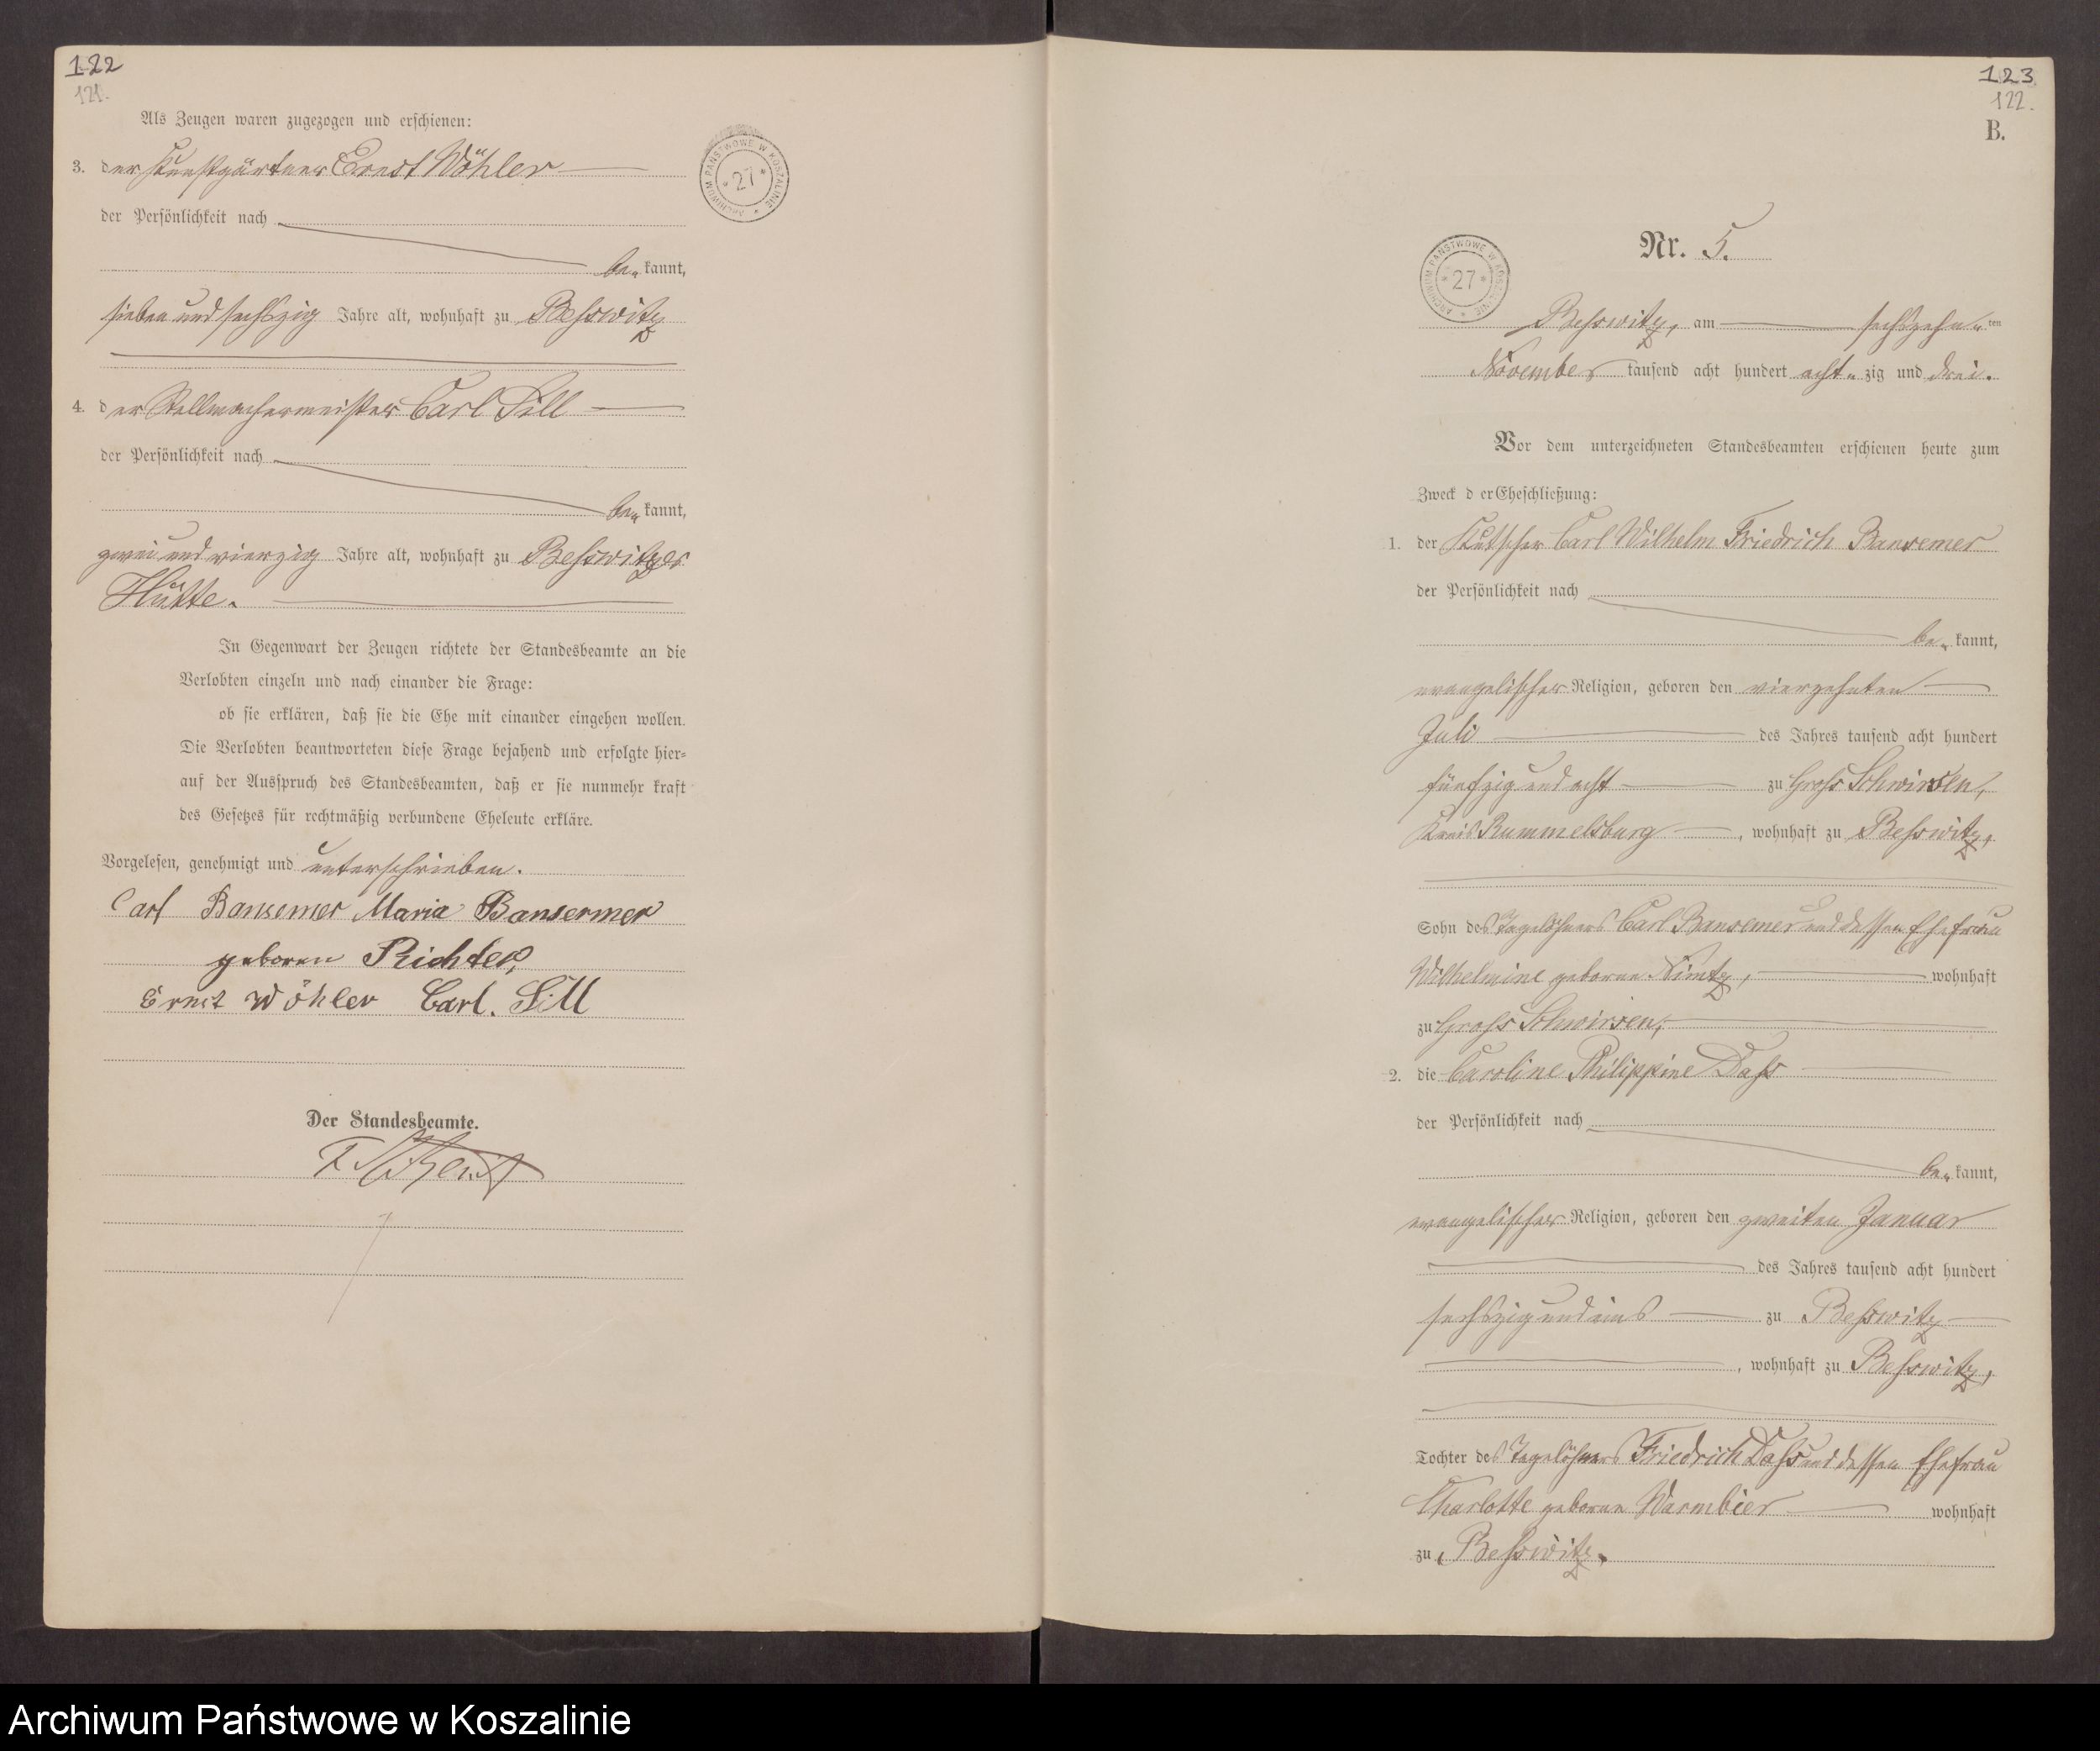 122
121.
Als Zeugen waren zugezogen und erschienen:
3. der Kunstgärtner Ernst Wöhler
der Persönlichkeit nach
be„ kannt,
sieben und sechszig Jahre alt, wohnhaft zu Besswitz
4. der Stellmachermeister Carl Sill
der Persönlichkeit nach
be„ kannt,
zwei und vierzig Jahre alt, wohnhaft zu Besswitzer
Hütte.
In Gegenwart der Zeugen richtete der Standesbeamte an die
Verlobten einzeln und nach einander die Frage:
ob sie erklären, daß sie die Ehe mit einander eingehen wollen.
Die Verlobten beantworteten diese Frage bejahend und erfolgte hier-
auf der Ausspruch des Standesbeamten, daß er sie nunmehr kraft
des Gesetzes für rechtmäßig verbundene Eheleute erkläre.
Vorgelesen, genehmigt und unterschrieben.
Carl Bansemer Maria Bansermer
geboren Richter,
Ernst Wöhler Carl. Sill
Der Standesbeamte.
ARCHIWUM PAŃSTWOWE W KOSZALINIE
* 27 *
123
122.
B.
ARCHIWUM PAŃSTWOWE W KOSZALINIE
* 27 *
Nr. 5.
Besswitz, am sechszehn„ ten
November tausend acht hundert acht„ zig und drei.
Vor dem unterzeichneten Standesbeamten erschienen heute zum
Zweck d er Eheschließung:
1. der Kutscher Carl Wilhelm Friedrich Bansemer
der Persönlichkeit nach
be„ kannt,
evangelischer Religion, geboren den vierzehnten
Juli des Jahres tausend acht hundert
fünfzig und acht zu Gross Schwirsen,
Kreis Rummelsburg, wohnhaft zu Besswitz,
Sohn des Tagelöhners Carl Bansemer und dessen Ehefrau
Wilhelmine geborne Nimtz, wohnhaft
zu Gross Schwirsen,
2. die Caroline Philippine Dass
der Persönlichkeit nach
be„ kannt,
evangelischer Religion, geboren den zweiten Januar
des Jahres tausend acht hundert
sechszig und eins zu Besswitz
, wohnhaft zu Besswitz,
Tochter des Tagelöhners Friedrich Dass und dessen Ehefrau
Charlotte geborne Warmbier wohnhaft
zu Besswitz.
Archiwum Państwowe w Koszalinie